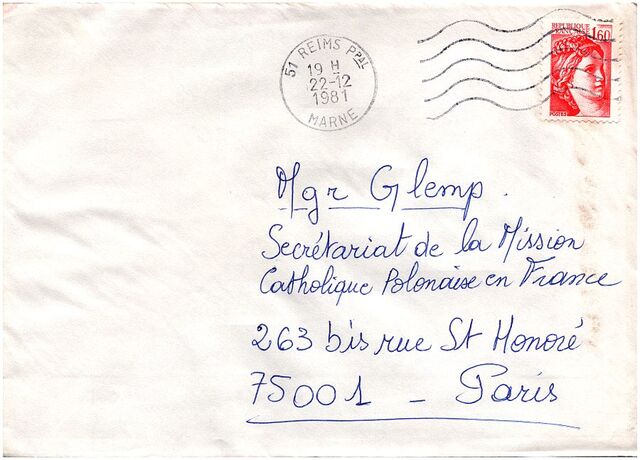 51 REIMS PPAL
19 H
22-12
1981
MARNE
REPUBLIQUE
FRANÇAISE
1,60
POSTES
Mgr Glemp.
Secrétariat de la Mission
Catholique Polonaise en France
263 bis rue St Honoré
75001 - Paris